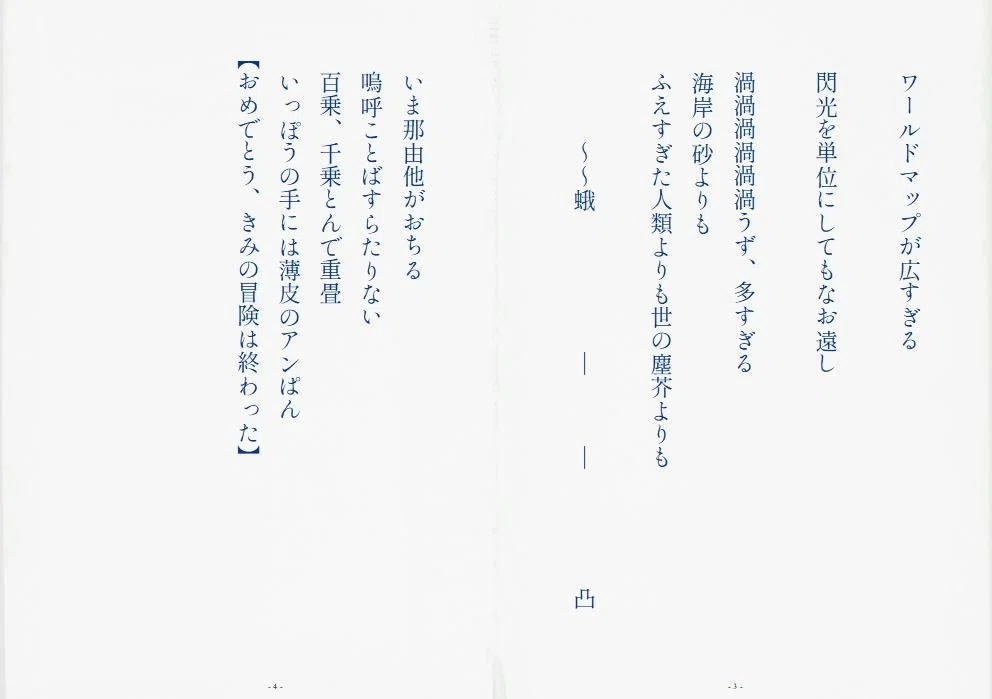 ワールドマップが広すぎる
閃光を単位にしてもなお遠し
渦渦渦渦渦渦うず、多すぎる
海岸の砂よりも
ふえすぎた人類よりも世の塵芥よりも
〜〜蛾　　　　　　｜　　　｜　　　　　凸
- 3 -
いま那由他がおちる
嗚呼ことばすらたりない
百乗、千乗とんで重畳
いっぽうの手には薄皮のアンぱん
【おめでとう、きみの冒険は終わった】
- 4 -